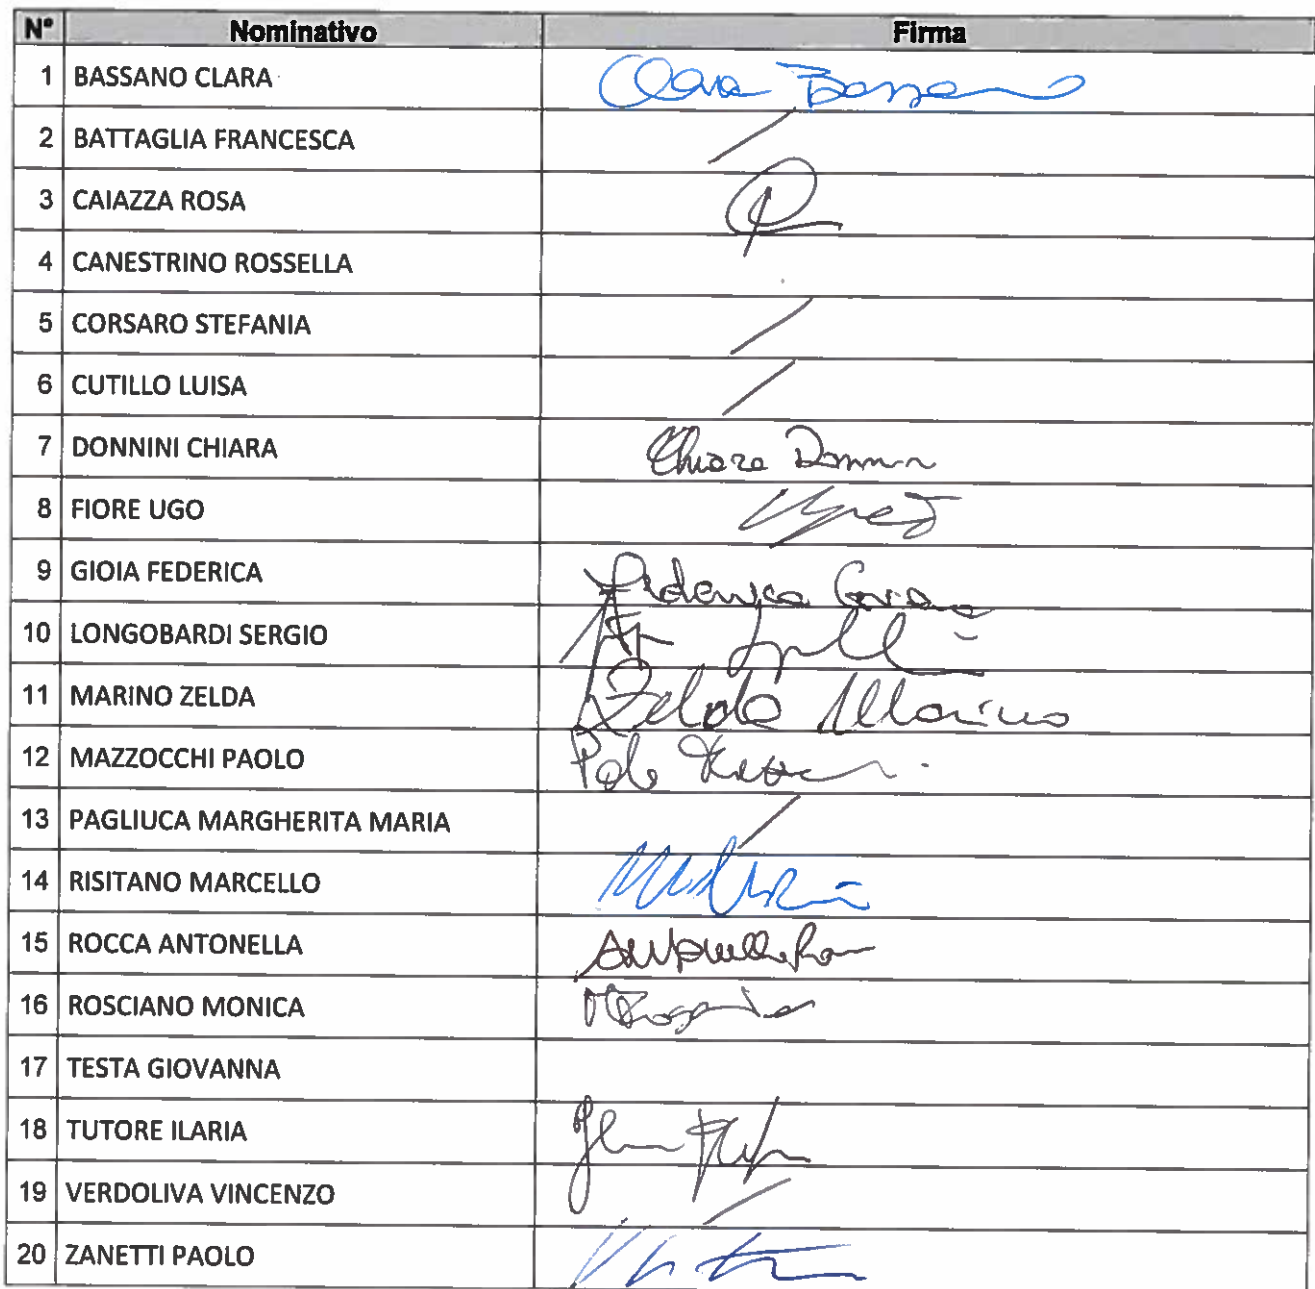 N° Nominativo Firma
1 BASSANO CLARA Clara Bassano
2 BATTAGLIA FRANCESCA /
3 CAIAZZA ROSA
4 CANESTRINO ROSSELLA
5 CORSARO STEFANIA /
6 CUTILLO LUISA /
7 DONNINI CHIARA Chiara Donnini
8 FIORE UGO
9 GIOIA FEDERICA Federica Gioia
10 LONGOBARDI SERGIO
11 MARINO ZELDA Zelda Marino
12 MAZZOCCHI PAOLO Paolo
13 PAGLIUCA MARGHERITA MARIA /
14 RISITANO MARCELLO
15 ROCCA ANTONELLA Antonella
16 ROSCIANO MONICA
17 TESTA GIOVANNA
18 TUTORE ILARIA
19 VERDOLIVA VINCENZO /
20 ZANETTI PAOLO